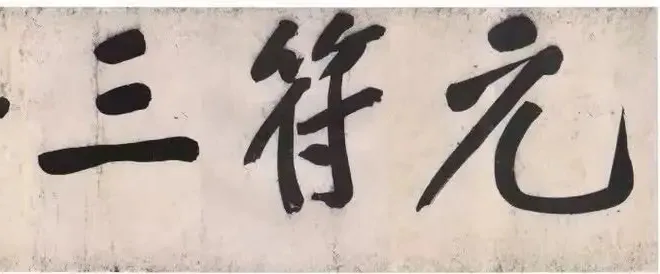 元符三